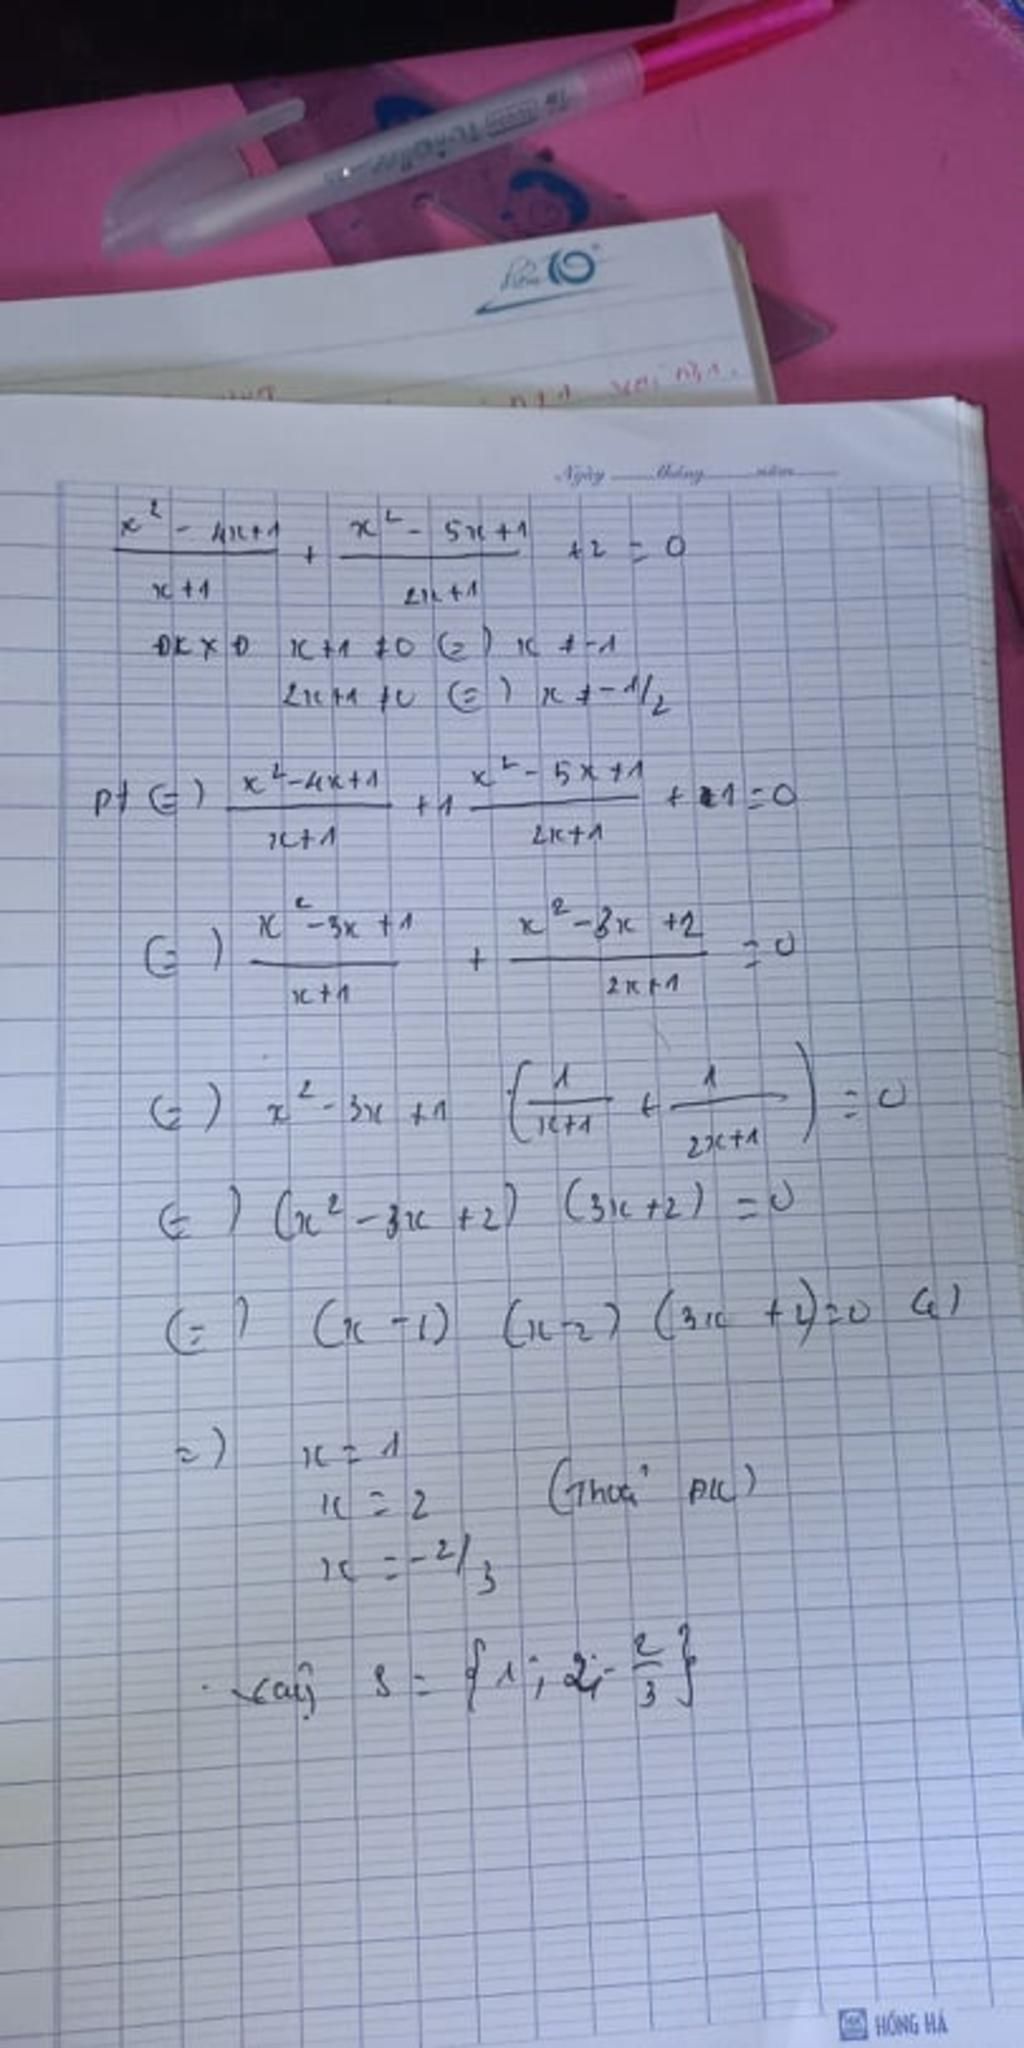 Ngày tháng năm
x² - 4x+1 / x+1 + x² - 5x+1 / 2x+1 +2 = 0
ĐKXĐ x+1 ≠0 (=) x ≠ -1
2x+1 ≠0 (=) x ≠ -1/2
pt (=) x²-4x+1 / x+1 +1 x² - 5x+1 / 2x+1 + 1 = 0
(=) x²-3x+1 / x+1 + x²-3x+2 / 2x+1 = 0
(=) x² - 3x +1 (1 / x+1 + 1 / 2x+1) = 0
(=) (x² - 3x +2) (3x+2) = 0
(=) (x-1) (x-2) (3x +2)=0
=) x = 1
x = 2 (Thoả ĐK)
x = -2/3
vậy S = {1; 2; -2/3}
HỒNG HÀ